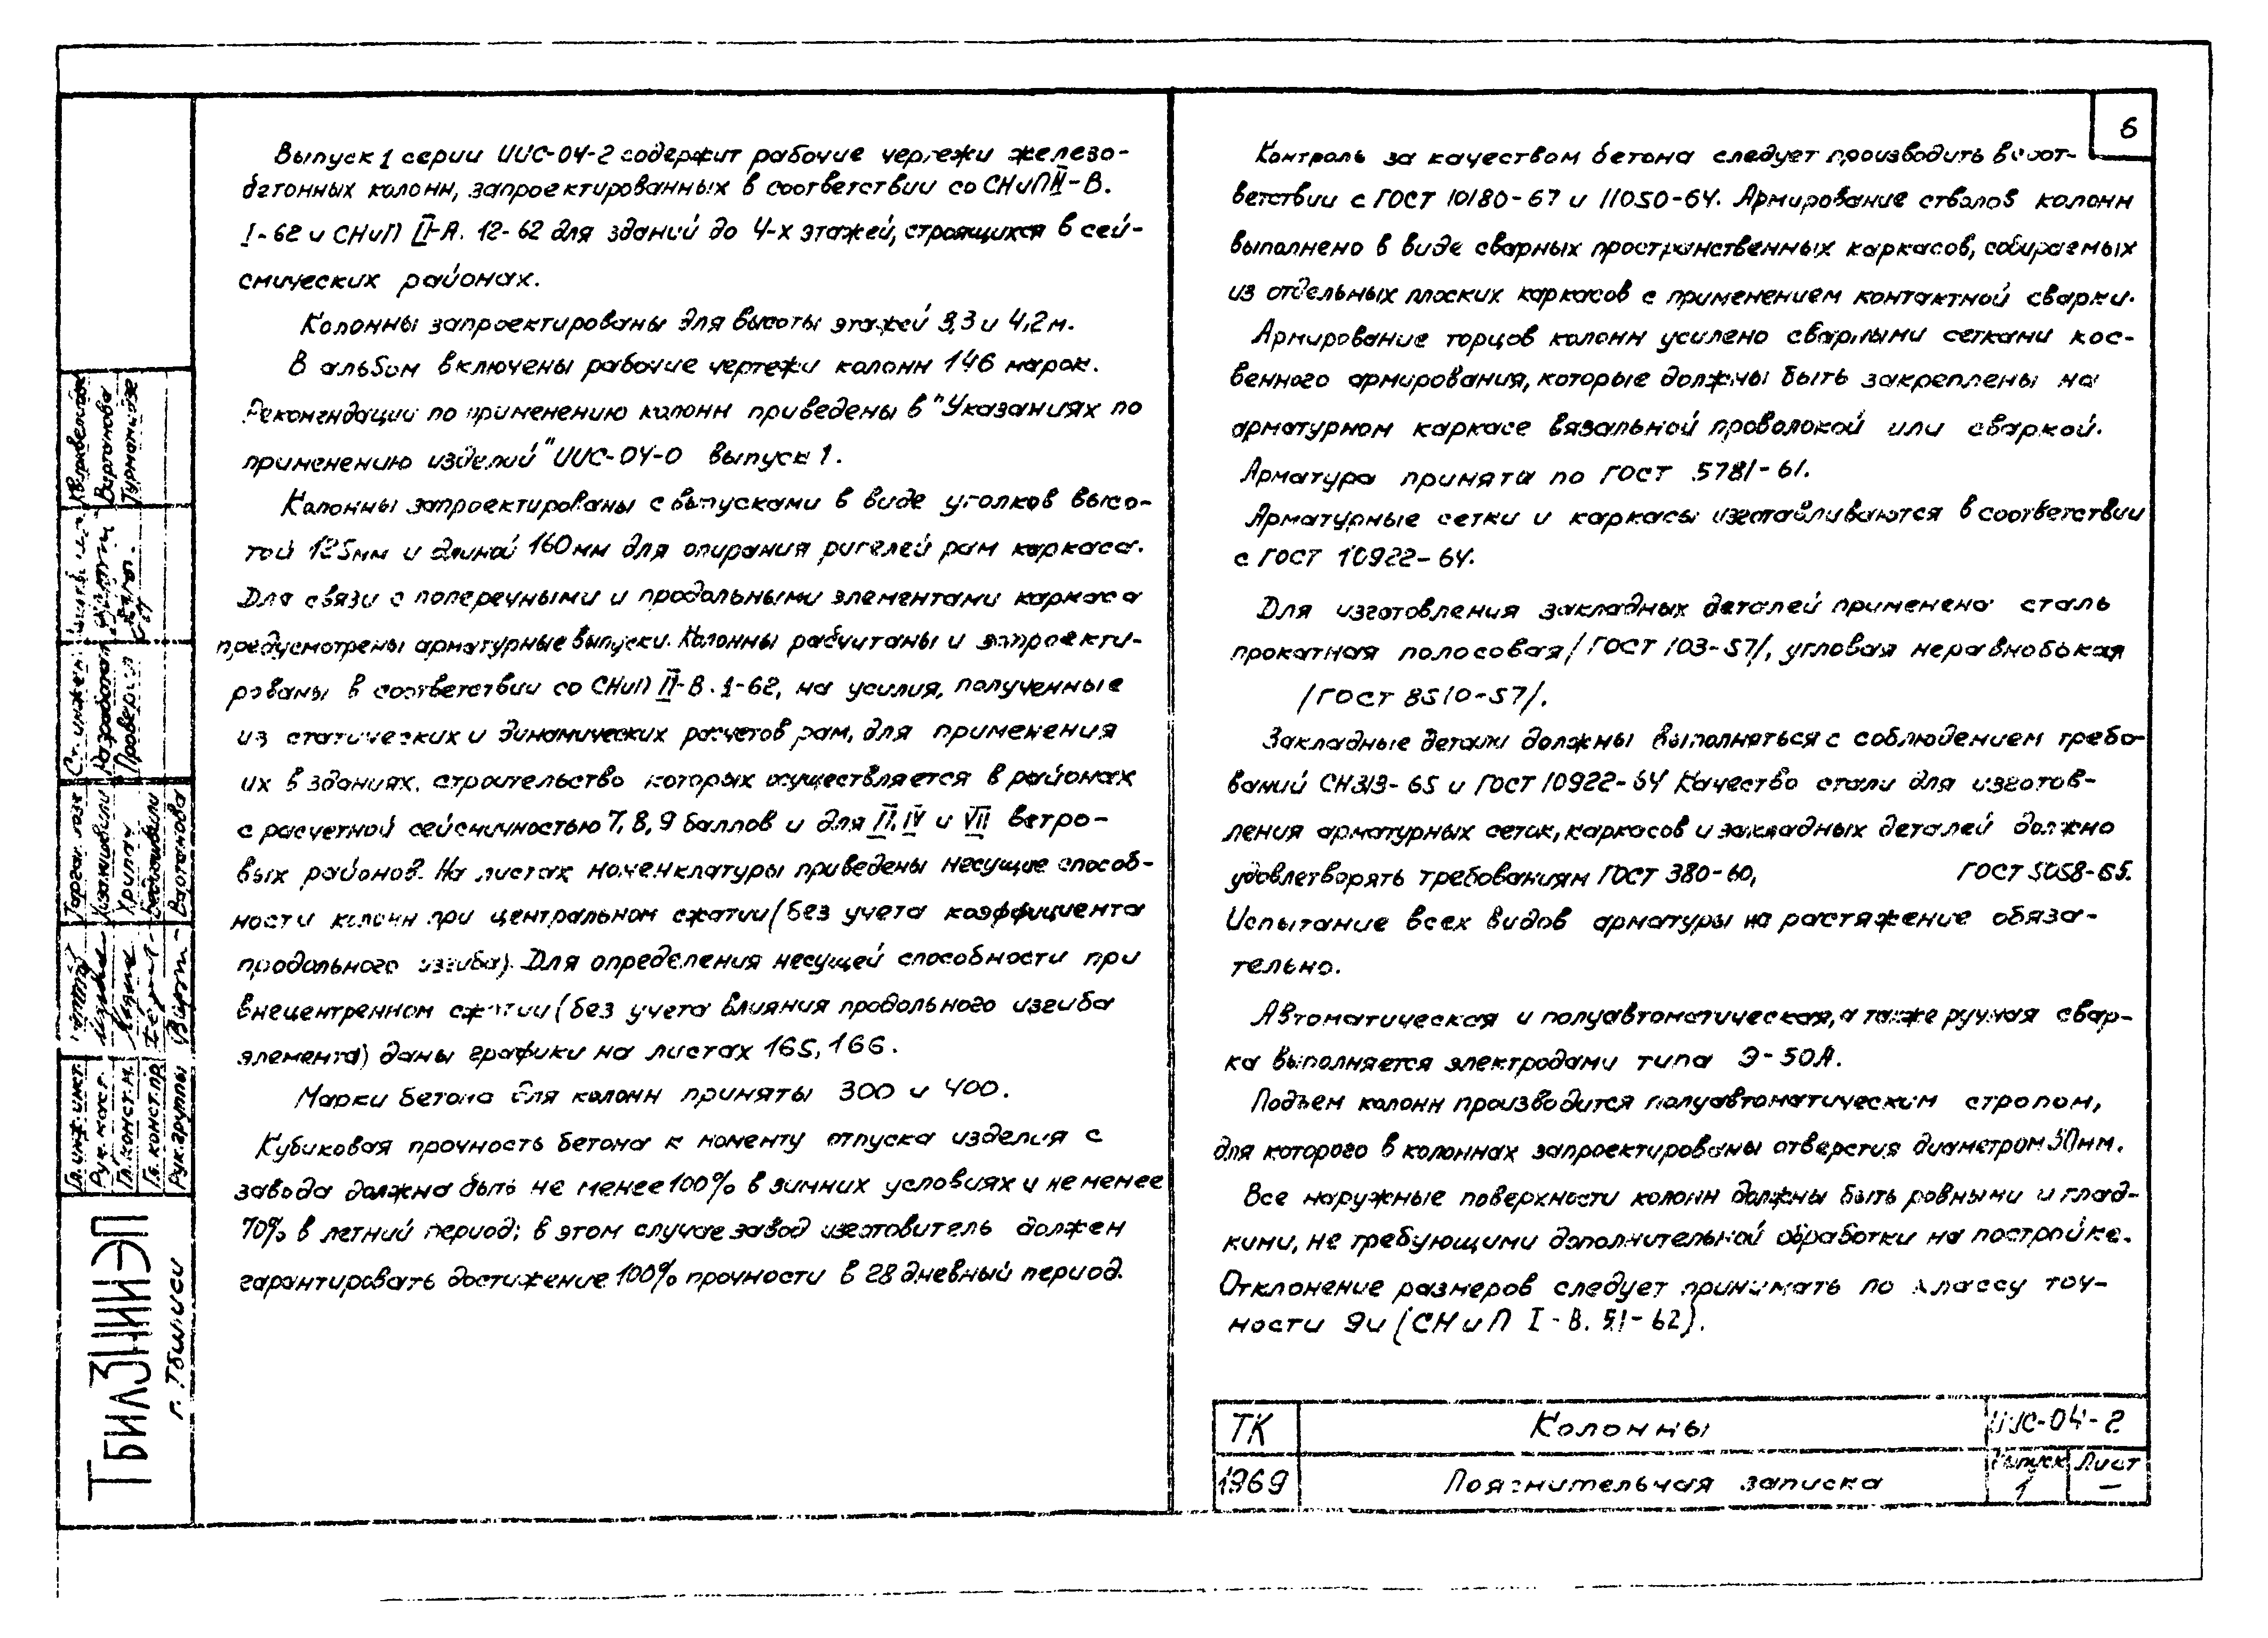 6
Выпуск 1 серии ИИС-04-2 содержит рабочие чертежи железо-
бетонных колонн, запроектированных в соответствии со СНиП II-В.
I-62 и СНиП II-А. 12-62 для зданий до 4-х этажей, строящихся в сей-
смических районах.
Колонны запроектированы для высоты этажей 3,3 и 4,2м.
В альбом включены рабочие чертежи колонн 146 марок.
Рекомендации по применению колонн приведены в "Указаниях по
применению изделий" ИИС-04-0 выпуск 1.
Колонны запроектированы с выпусками в виде уголков высо-
той 125мм и длиной 160мм для опирания ригелей рам каркаса.
Для связи с поперечными и продольными элементами каркаса
предусмотрены арматурные выпуски. Колонны расчитаны и запроекти-
рованы в соответствии со СНиП II-В. 1-62, на усилия, полученные
из статических и динамических расчетов рам, для применения
их в зданиях, строительство которых осуществляется в районах
с расчетной сейсмичностью 7, 8, 9 баллов и для II, IV и VII ветро-
вых районов. На листах номенклатуры приведены несущие способ-
ности колонн при центральном сжатии (без учета коэффициента
продольного изгиба). Для определения несущей способности при
внецентренном сжатии (без учета влияния продольного изгиба
элемента) даны графики на листах 165, 166.
Марки бетона для колонн приняты 300 и 400.
Кубиковая прочность бетона к моменту отпуска изделия с
завода должна быть не менее 100% в зимних условиях и не менее
70% в летний период; в этом случае завод изготовитель должен
гарантировать достижение 100% прочности в 28 дневный период.
Контроль за качеством бетона следует производить в соот-
ветствии с ГОСТ 10180-67 и 11050-64. Армирование стволов колонн
выполнено в виде сварных пространственных каркасов, собираемых
из отдельных плоских каркасов с применением контактной сварки.
Армирование торцов колонн усилено сварными сетками кос-
венного армирования, которые должны быть закреплены на
арматурном каркасе вязальной проволокой или сваркой.
Арматура принята по ГОСТ 5781-61.
Арматурные сетки и каркасы изготавливаются в соответствии
с ГОСТ 10922-64.
Для изготовления закладных деталей применена сталь
прокатная полосовая /ГОСТ 103-57/, угловая неравнобокая
/ГОСТ 8510-57/.
Закладные детали должны выполняться с соблюдением требо-
ваний СН313-65 и ГОСТ 10922-64 Качество стали для изготов-
ления арматурных сеток, каркасов и закладных деталей должно
удовлетворять требованиям ГОСТ 380-60, ГОСТ 5058-65.
Испытание всех видов арматуры на растяжение обяза-
тельно.
Автоматическая и полуавтоматическая, а также ручная свар-
ка выполняется электродами типа Э-50А.
Подъем колонн производится полуавтоматическим стропом,
для которого в колоннах запроектированы отверстия диаметром 50мм.
Все наружные поверхности колонн должны быть ровными и глад-
кими, не требующими дополнительной обработки на постройке.
Отклонение размеров следует принимать по классу точ-
ности 9и (СНиП I-В. 5.1-62).
ТК
Колонны
ИИС-04-2
1969
Пояснительная записка
Выпуск
1
Лист
—
Ст. инжен.
Разработал
Проверил
Вартанова
Турманидзе
Гл. инж. инст.
Рук. маст.
Гл. конст. м.
Гл. конст. пр.
Рук. группы
Хрипач
Вартанова
ТбилЗНИИЭП
г. Тбилиси